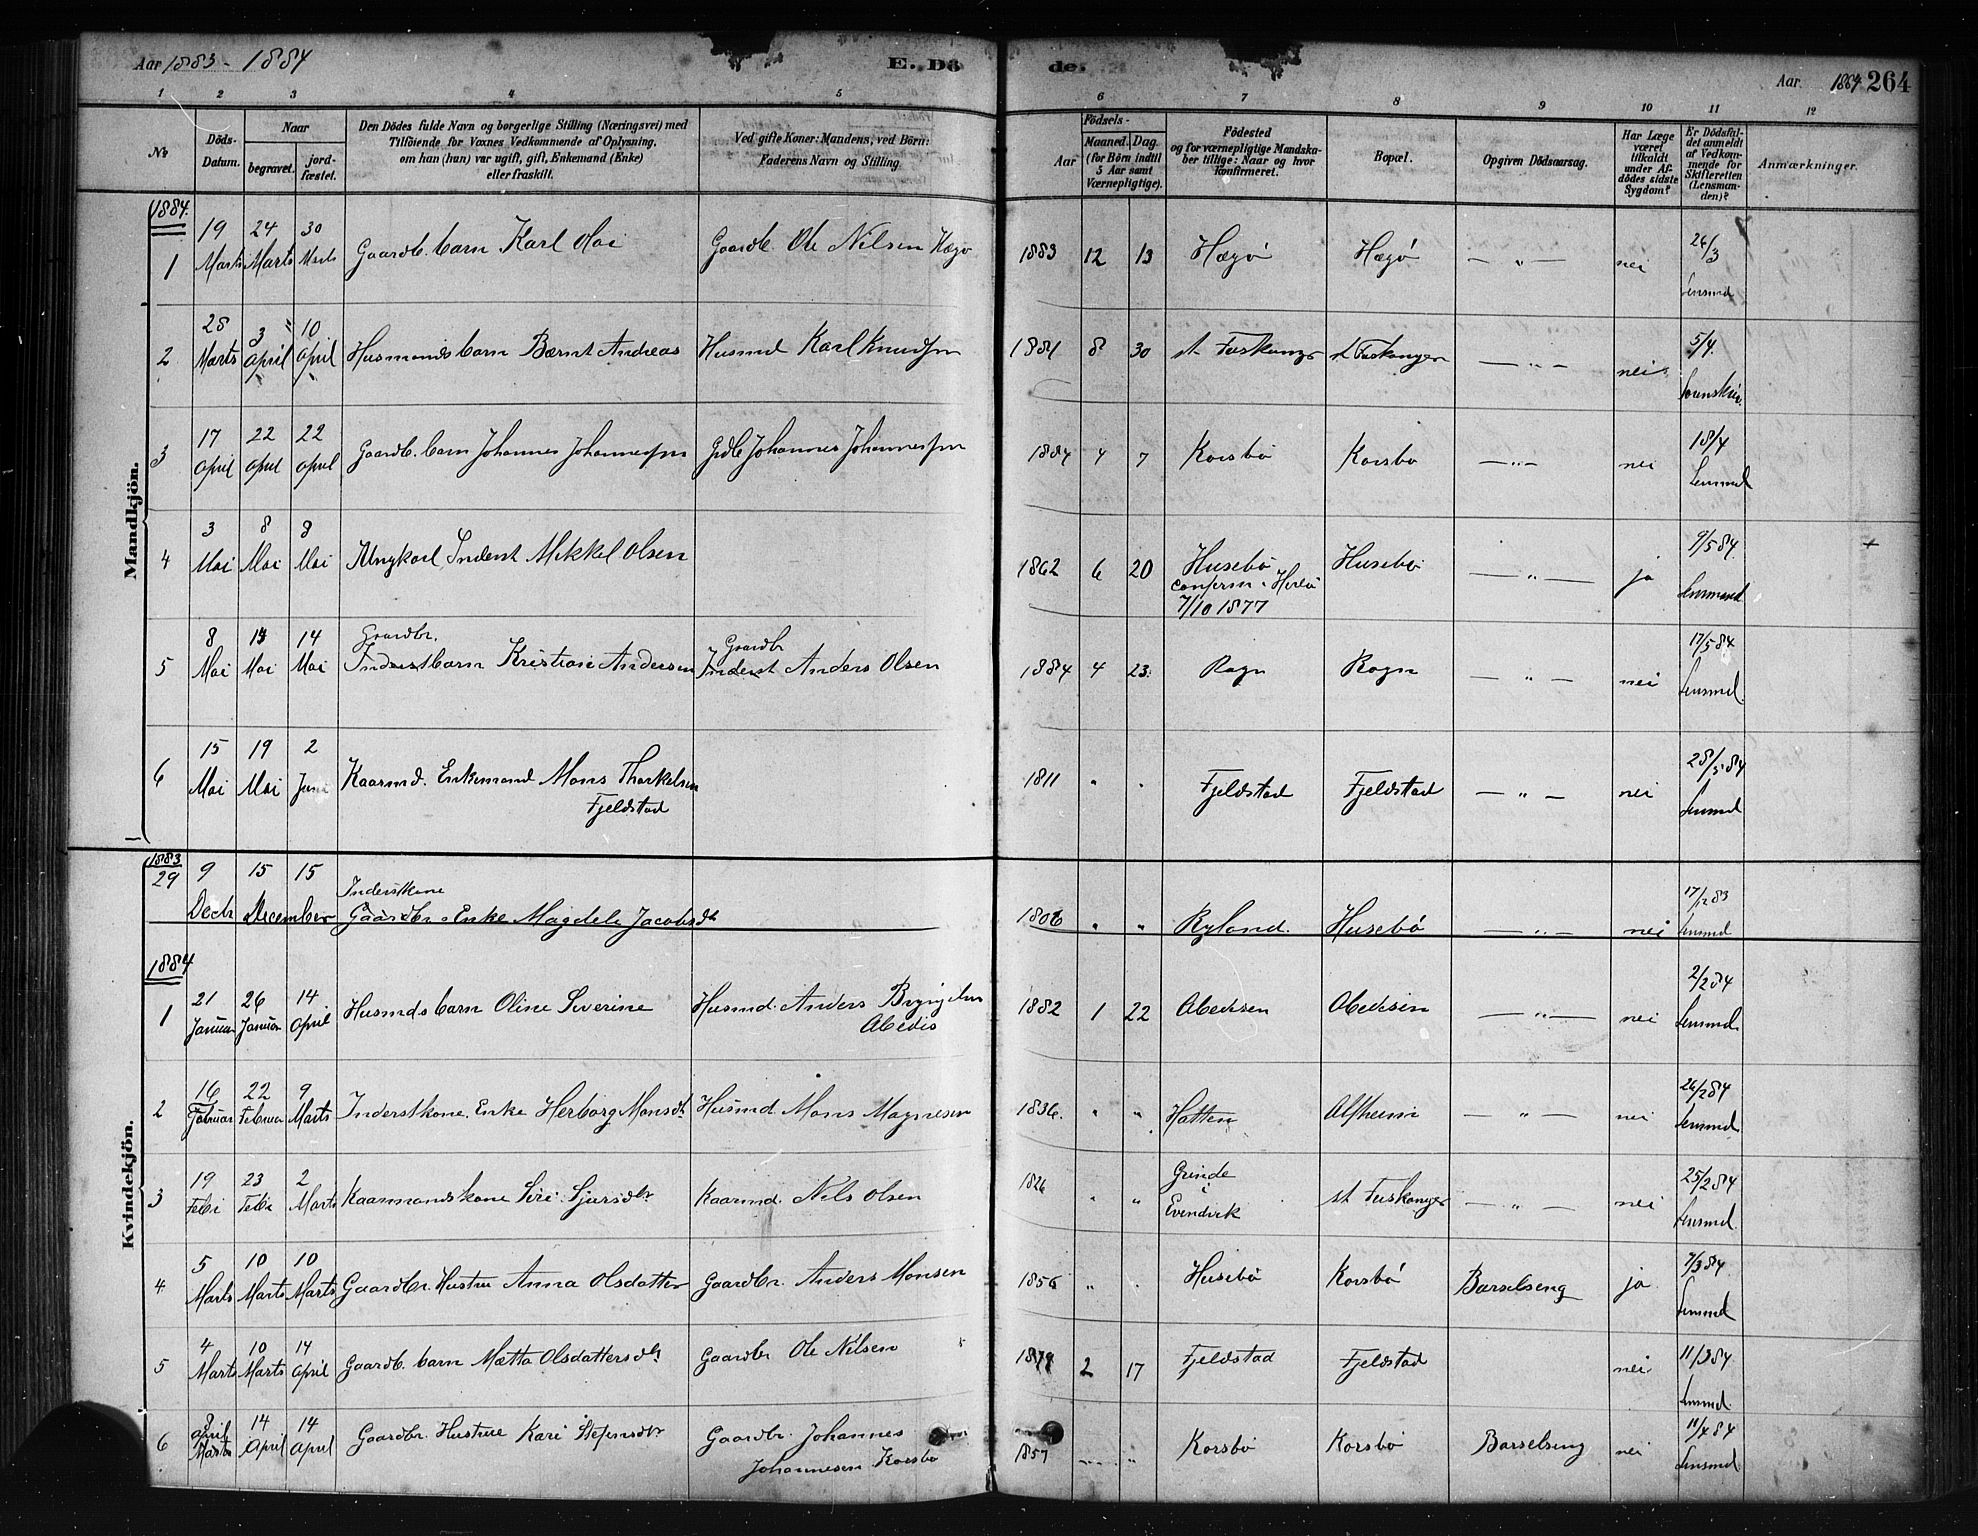 Aar 1883 - 1884
E. Dö
de.
Aar. 1884 264
1 2 3 4 5 6 7 8 9 10 11 12
No
Döds-Datum.
Naar
begravet.
jord-fæstet.
Den Dödes fulde Navn og borgerlige Stilling (Næringsvei) med
Tilföiende for Voxnes Vedkommende af Oplysning,
om han (hun) var ugift, gift, Enkemand (Enke)
eller fraskilt.
Ved gifte Koner: Mandens, ved Börn:
Faderens Navn og Stilling.
Födsels-
Aar
Maaned. Dag.
(for Börn indtil
5 Aar samt
Værnepligtige).
Födested
og for værnepligtige Mandska-
ber tillige: Naar og hvor
konfirmeret.
Bopæl.
Opgiven Dödsaarsag.
Har Læge
været
tilkaldt
under Af-
dödes sidste
Sygdom?
Er Dödsfal-
det anmeldt
af Vedkom-
mende for
Skifteretten
(Lensman-
den)?
Anmærkninger.
Mandkjön.
1884.
1 19 Marts 24 Marts 30 Marts Gaardb. barn Karl Gaardb. Ole Nilsen Hægö 1883 12 13 Hægö Hægö — " — nei 26/3 Lensmd
2 28 Marts 3 April 10 April Husmandsbarn Bærnt Andreas Husmd Karl Knudsen 1881 8 30 st Fuskanger st Fuskanger — " — nei 5/4.
3 17 April 22 April 22 April Gaardb. barn Johannes Johannessen Grdb Johannes Johannessen 1884 4 7 Korsbö Korsbö — " — nei 18/4 Lensmd
4 3 Mai 8 Mai 8 Mai Ungkarl, Inderst Mikkel Olsen 1862 6 20 Husebö Husebö — " — ja 9/5 84. Lensmand
conferm i Herlö
7/10 1877
5 8 Mai 14 Mai 14 Mai Gaardbr. Inderstbarn Kristian Andersen Gaardbr Inderst Anders Olsen 1884 4 23. Rogn Rogn — " — nei 17/5 84 Lensmd.
6 15 Mai 19 Mai 2 Juni Kaarmd. Enkemand Mons Thorkelsen 1811 " " Fjeldstad Fjeldstad — " — nei 28/5 84 Lensmd
Fjeldstad
Kvindekjön.
1883
29 9 Decbr 15 15 December Inderstkone Gaardbr. Enke Magdeli Jacobsdt 1806 " " Ryland. Husebö — " — nei 17/12 83 Lensmd
1884
1 21 Januar 26 Januar 14 April Husmdsbarn Oline Severine Husmd. Anders 1882 1 22 — " — nei 2/2 84 Lensmd.
2 16 Februar 22 Februar 9 Marts Inderstkone. Enke Herborg Monsdt Husmd Mons Magnesen 1836. " " Hatten Alfheim — " — nei 26/2 84 Lensmd.
3 19 Febr 23 Febr 2 Marts Kaarmandskone Siri Sjursdtr Kaarmd. Nils Olsen 1826 " " Grinde i Evendvik st Fuskanger — " — nei 25/2 84 Lensmd.
4 5 Marts 10 Marts 10 Marts Gaardbr. Hustru Anna Olsdatter Gaardbr. Anders Monsen 1856 " " Husebö Korsbö Barselseng ja 7/3 84. Lensmd
5 4 Marts 10 Marts 14 April Gaardb. barn Mætta Olsdattersdtr Gaardbr Ole Nilsen 1879 2 17 Fjeldstad Fjeldstad nei 11/3 84. Lensmd.
6 8 April Marts 14 April 14 April Gaardbr. Hustrue Kari Gaardbr. Johannes 1857 " " Korsbö Korsbö Barselseng nei 11/4 84 Lensmd
Johannesen Korsbö